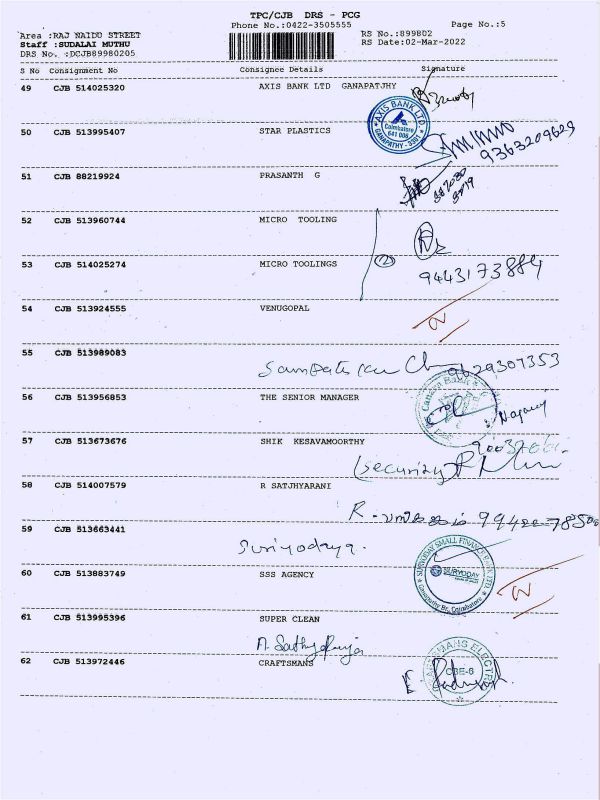 TPC/CJB DRS - PCG
Phone No.:0422-3505555 Page No.:5
Area :RAJ NAIDU STREET RS No.:899802
Staff :SUDALAI MUTHU RS Date:02-Mar-2022
DRS No. :DCJB89980205
S No Consignment No Consignee Details Signature
49 CJB 514025320 AXIS BANK LTD GANAPATJHY
AXIS BANK LTD
Coimbatore
641 006
GANAPATHY - 3301
50 CJB 513995407 STAR PLASTICS
9363209629
51 CJB 88219924 PRASANTH G
52 CJB 513960744 MICRO TOOLING
2
53 CJB 514025274 MICRO TOOLINGS
9443173884
54 CJB 513924555 VENUGOPAL
55 CJB 513989083
9629307353
56 CJB 513956853 THE SENIOR MANAGER
Canara Bank
57 CJB 513673676 SHIK KESAVAMOORTHY
(security
58 CJB 514007579 R SATJHYARANI
R.
59 CJB 513663441
Suriyodaya.
SURYODAY SMALL FINANCE BANK LTD.
SURYODAY
Ganapathy Br, Coimbatore
60 CJB 513883749 SSS AGENCY
61 CJB 513995396 SUPER CLEAN
62 CJB 513972446 CRAFTSMANS
CBE-6